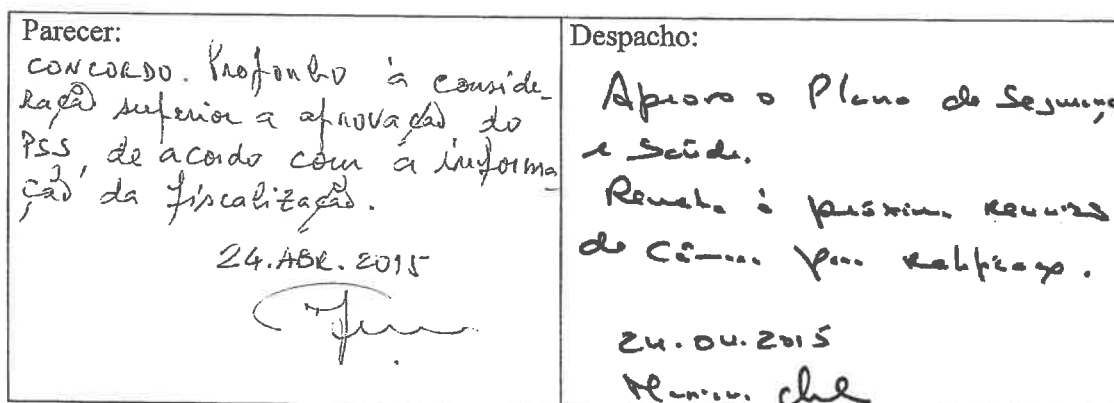 Parecer:
CONCORDO. Proponho à conside-
ração superior a aprovação do
PSS, de acordo com a informa-
ção da fiscalização.
24.ABR.2015
Despacho:
Aprovo o Plano de Segurança
e Saúde.
Remeta à próxima reunião
de Câmara para ratificação.
24.04.2015